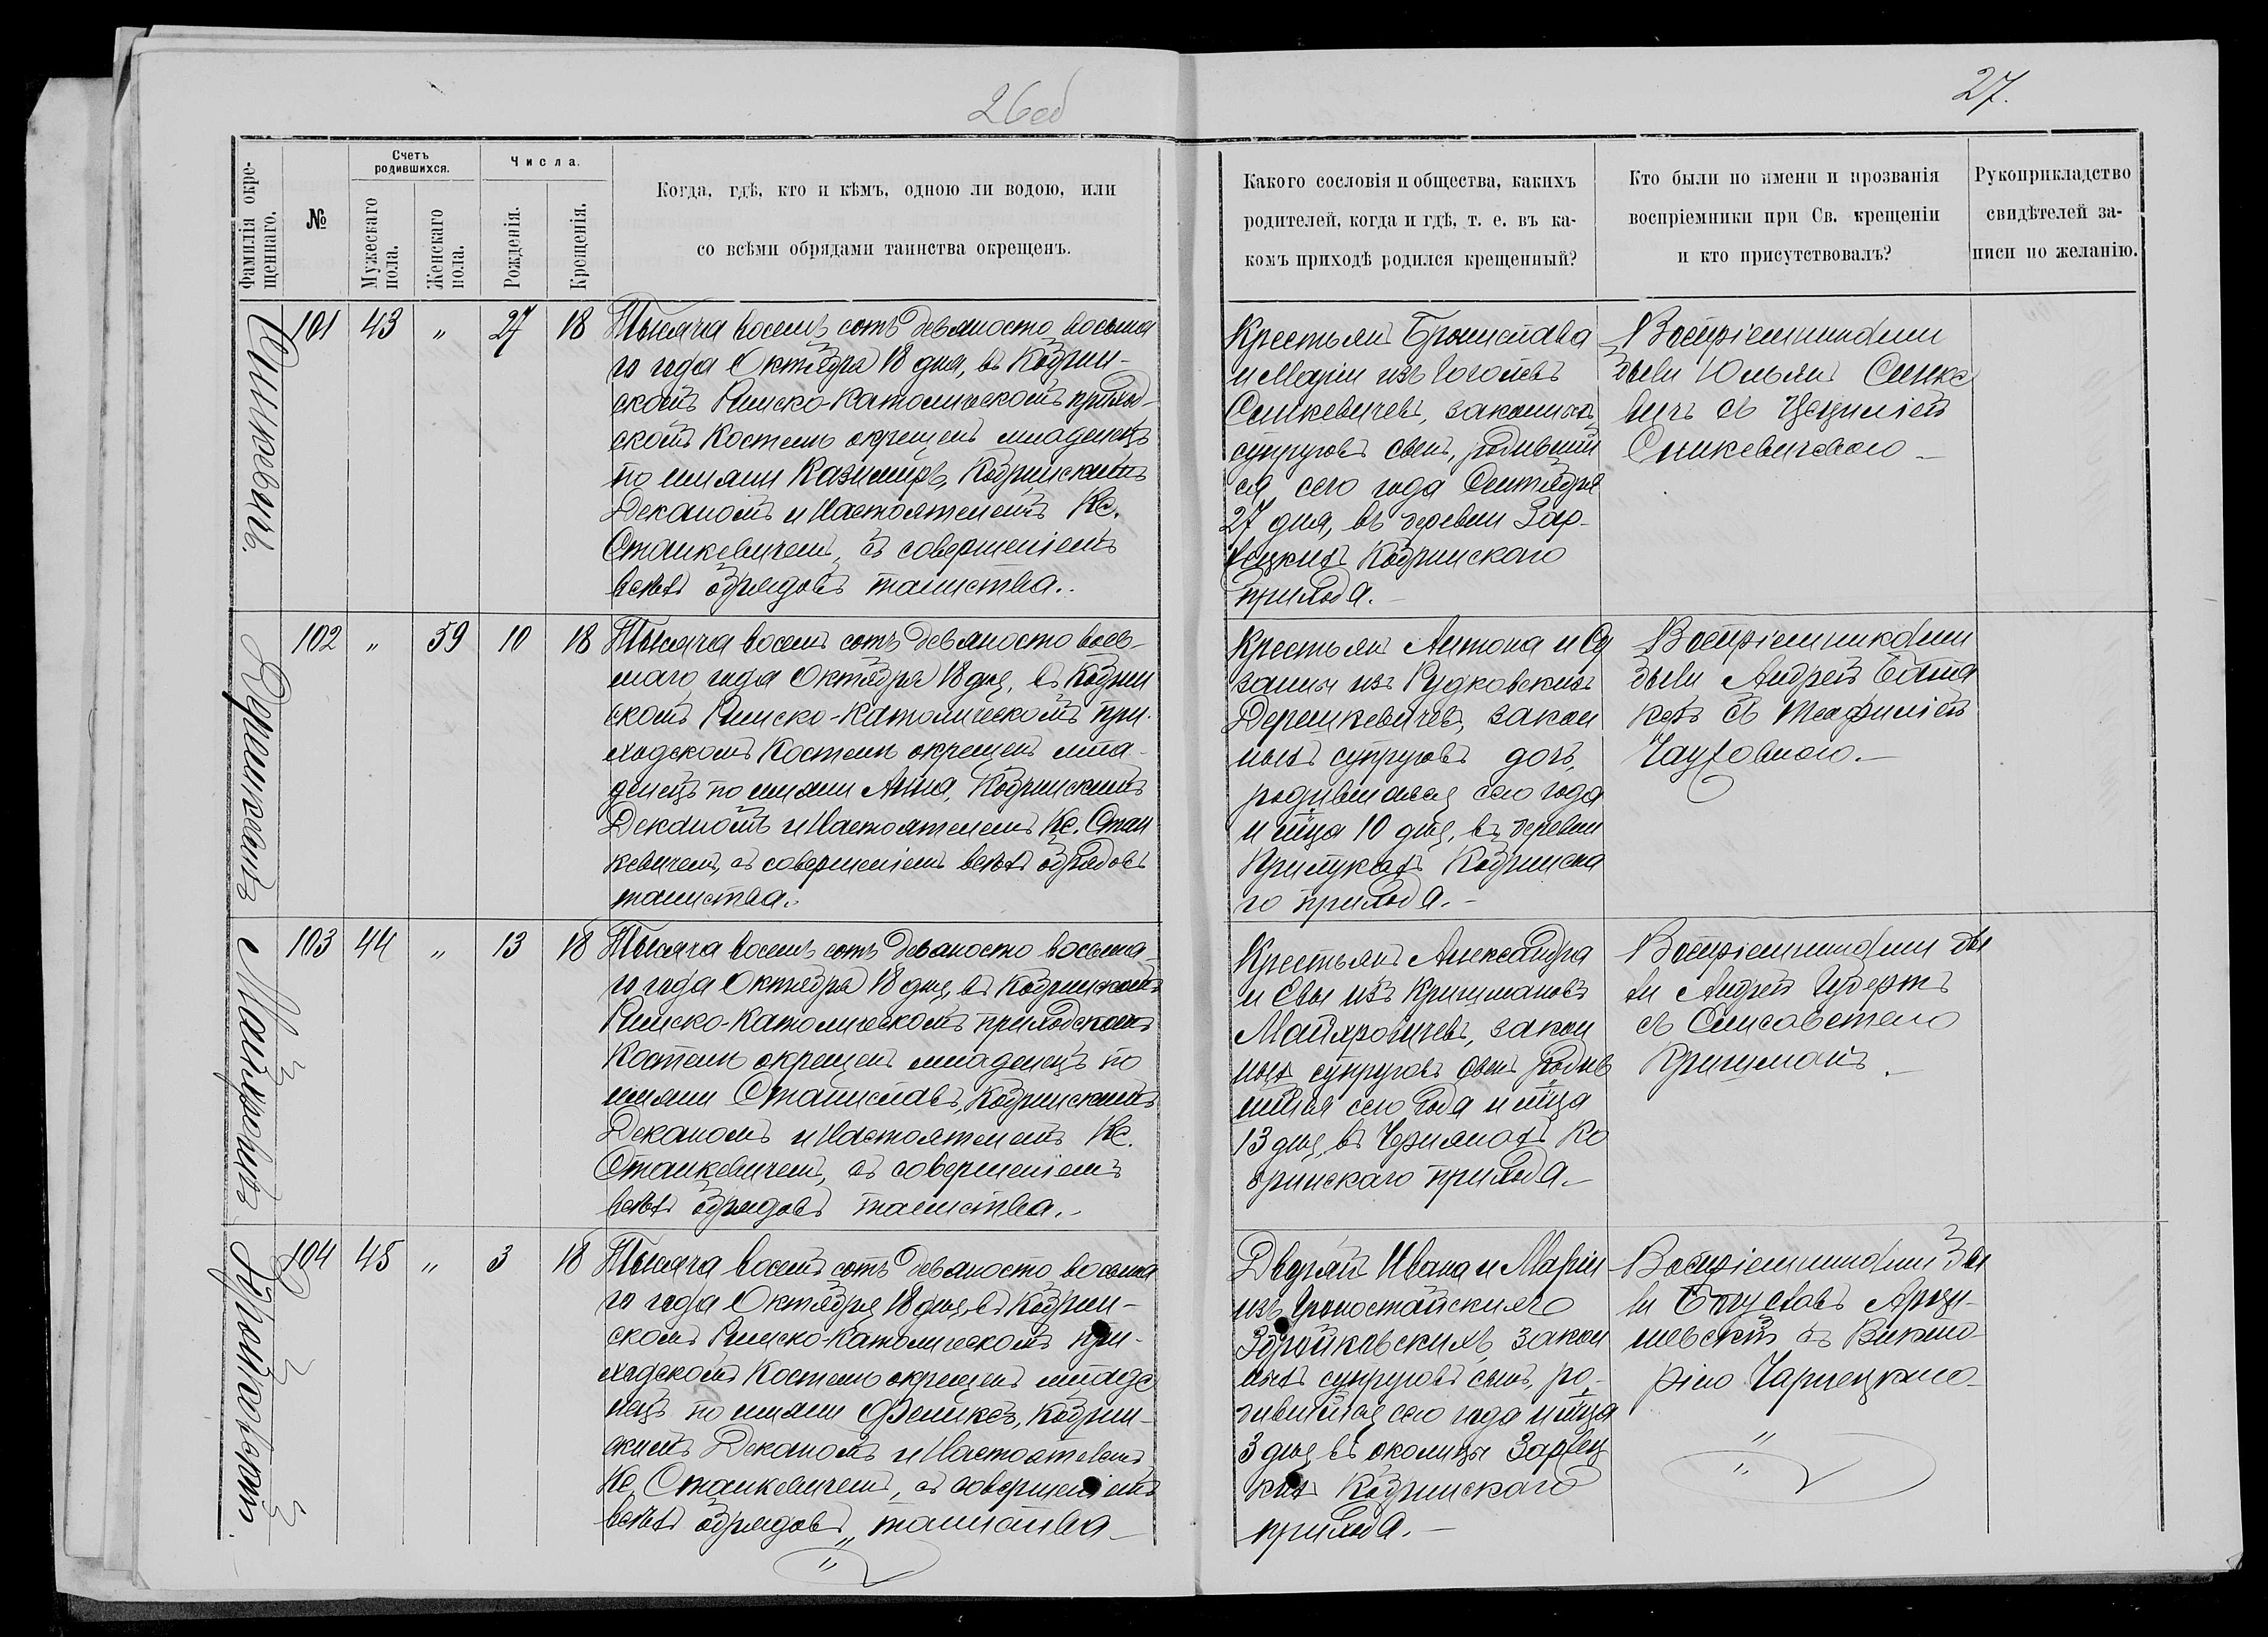 26об
27.
Фамилія окре-
щеннаго.
№
Счетъ
родившихся.
Мужескаго
пола.
Женскаго
пола.
Числа.
Рожденія.
Крещенія.
Когда, гдѣ, кто и кѣмъ, одною ли водою, или
со всѣми обрядами таинства окрещенъ.
Какого сословія и общества, какихъ
родителей, когда и гдѣ, т. е. въ ка-
комъ приходѣ родился крещенный?
Кто были по имени и прозванія
воспріемники при Св. крещеніи
и кто присутствовалъ?
Рукоприкладство
свидѣтелей за-
писи по желанію.
Синкевичъ.
101 43 „ 27 18
Тысяча восемь сотъ девяносто восьма
го года Октября 18 дня, въ Кобрин-
скомъ Римско-Католическомъ приход-
скомъ Костелѣ окрещенъ младенецъ
по имяни Казимиръ, Кобринскимъ
Деканомъ и Настоятелемъ Кс.
Станкевичемъ, съ совершеніемъ
всѣхъ обрядовъ таинства..
Крестьянъ Бронислава
и Маріи изъ
Синкевичевъ, законныхъ
супруговъ сынъ, родивший
ся сего года Сентября
27 дня, въ деревни Зар-
вецкихъ Кобринскаго
прихода.-
Воспріемниками
были Юльянъ Синке
вичъ съ Цецилiей
Синкевичевою -
102 „ 59 10 18
Тысяча восемь сотъ девяносто вось-
маго года Октября 18 дня, въ Кобрин
скомъ Римско-Католическомъ при-
ходскомъ Костелѣ окрещенъ мла-
денецъ по имяни Анна, Кобринскимъ
Деканомъ и Настоятелемъ Кс. Стан
кевичемъ, съ совершеніемъ всѣхъ обрядовъ
таинства.
Крестьянъ Антона и Су
занны изъ Рудковскихъ
закон
ныхъ супруговъ дочь,
родившаяся сего года
и мѣсца 10 дня, въ деревни
Прилукахъ Кобринска
го прихода.-
Воспріемниками
были Андрей
съ Теофилiей
103 44 „ 13 18
Тысяча восемь сотъ девяносто восьма-
го года Октября 18 дня, въ Кобринскомъ
Римско-Католическомъ приходскомъ
Костелѣ окрещенъ младенецъ по
имяни Станиславъ, Кобринскимъ
Деканомъ и Настоятелемъ Кс.
Станкевичемъ, съ совершеніемъ
всѣхъ обрядовъ таинства.-
Крестьянъ Александра
и Евы изъ Кришмановъ
закон
ныхъ супруговъ сынъ родив
шійся сего года и мѣсца
13 дня, въ Чериянахъ Ко
бринскаго прихода.-
Воспріемниками бы
ли Андрей
съ Елисаветою
Кришманъ.-
104 45 „ 3 18
Тысяча восемь сотъ девяносто восьма
го года Октября 18 дня, въ Кобрин-
скомъ Римско-Католическомъ при-
ходскомъ Костелѣ окрещенъ младе
нецъ по имяни Феликсъ, Кобрин-
скимъ Деканомъ и Настоятелемъ
Кс. Станкевичемъ, съ совершеніемъ
всѣхъ обрядовъ таинства -
Дворянъ Ивана и Маріи
изъ
закон
ныхъ супруговъ сынъ, ро-
дившійся сего года и мѣсца
3 дня въ околицы Зарвец
кихъ Кобринскаго
прихода.-
Воспріемниками бы
ли
съ Викто-
ріею Чарнецкою